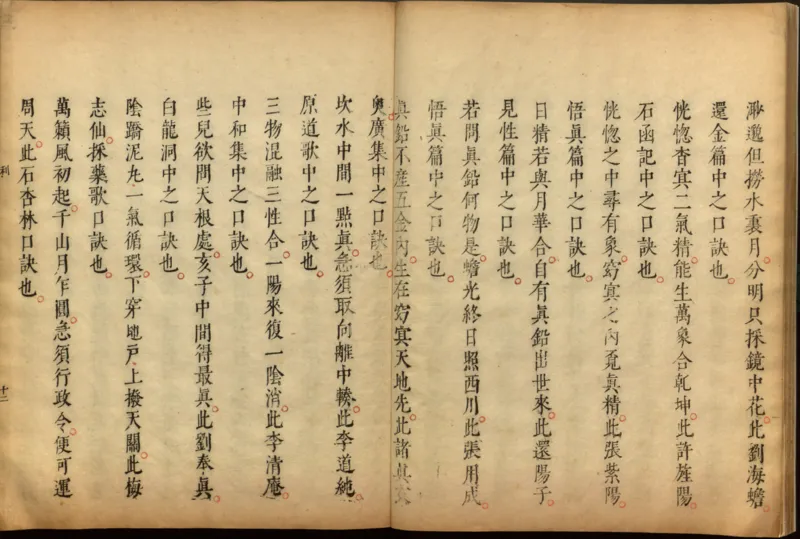 渺邈但撈水裏月分明只採鏡中花此劉海蟾
還金篇中之口訣也
恍惚杳㝠二氣精能生萬象合乾坤此許旌陽
石函記中之口訣也
恍惚之中尋有象窈㝠之內覔眞精此張紫陽
悟眞篇中之口訣也
日精若與月華合自有眞鉛出世來此還陽子
見性篇中之口訣也
若問眞鉛何物是蟾光終日照西川此張用成
悟眞篇中之口訣也
眞鉛不產五金內生在窈㝠天地先此諸眞玄
奧廣集中之口訣也
坎水中間一點眞急須取向離中輳此李道純
原道歌中之口訣也
三物混融三性合一陽來復一陰消此李清庵
中和集中之口訣也
些兒欲問天根處亥子中間得最眞此劉奉眞
白龍洞中之口訣也
陰蹻泥丸一氣循環下穿地戸上撥天關此梅
志仙採藥歌口訣也
萬籟風初起千山月乍圓急須行政令便可運
周天此石杏林口訣也
利
十二